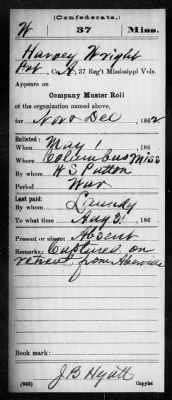 (Confederate.)
W 37 Miss.
Harvey Wright
Pvt, Co. A, 37 Reg't Mississippi Vols.
Appears on
Company Muster Roll
of the organization named above,
for Nov & Dec, 1862
Enlisted:
When May 1, 186
Where Columbus Miss
By whom W S Patton
Period War
Last paid:
By whom Lundy
To what time Aug 31, 186
Present or absent Absent
Remarks: Captured on
retreat from Abbeville
Book mark:
J. B. Hyatt
(642) Copyist